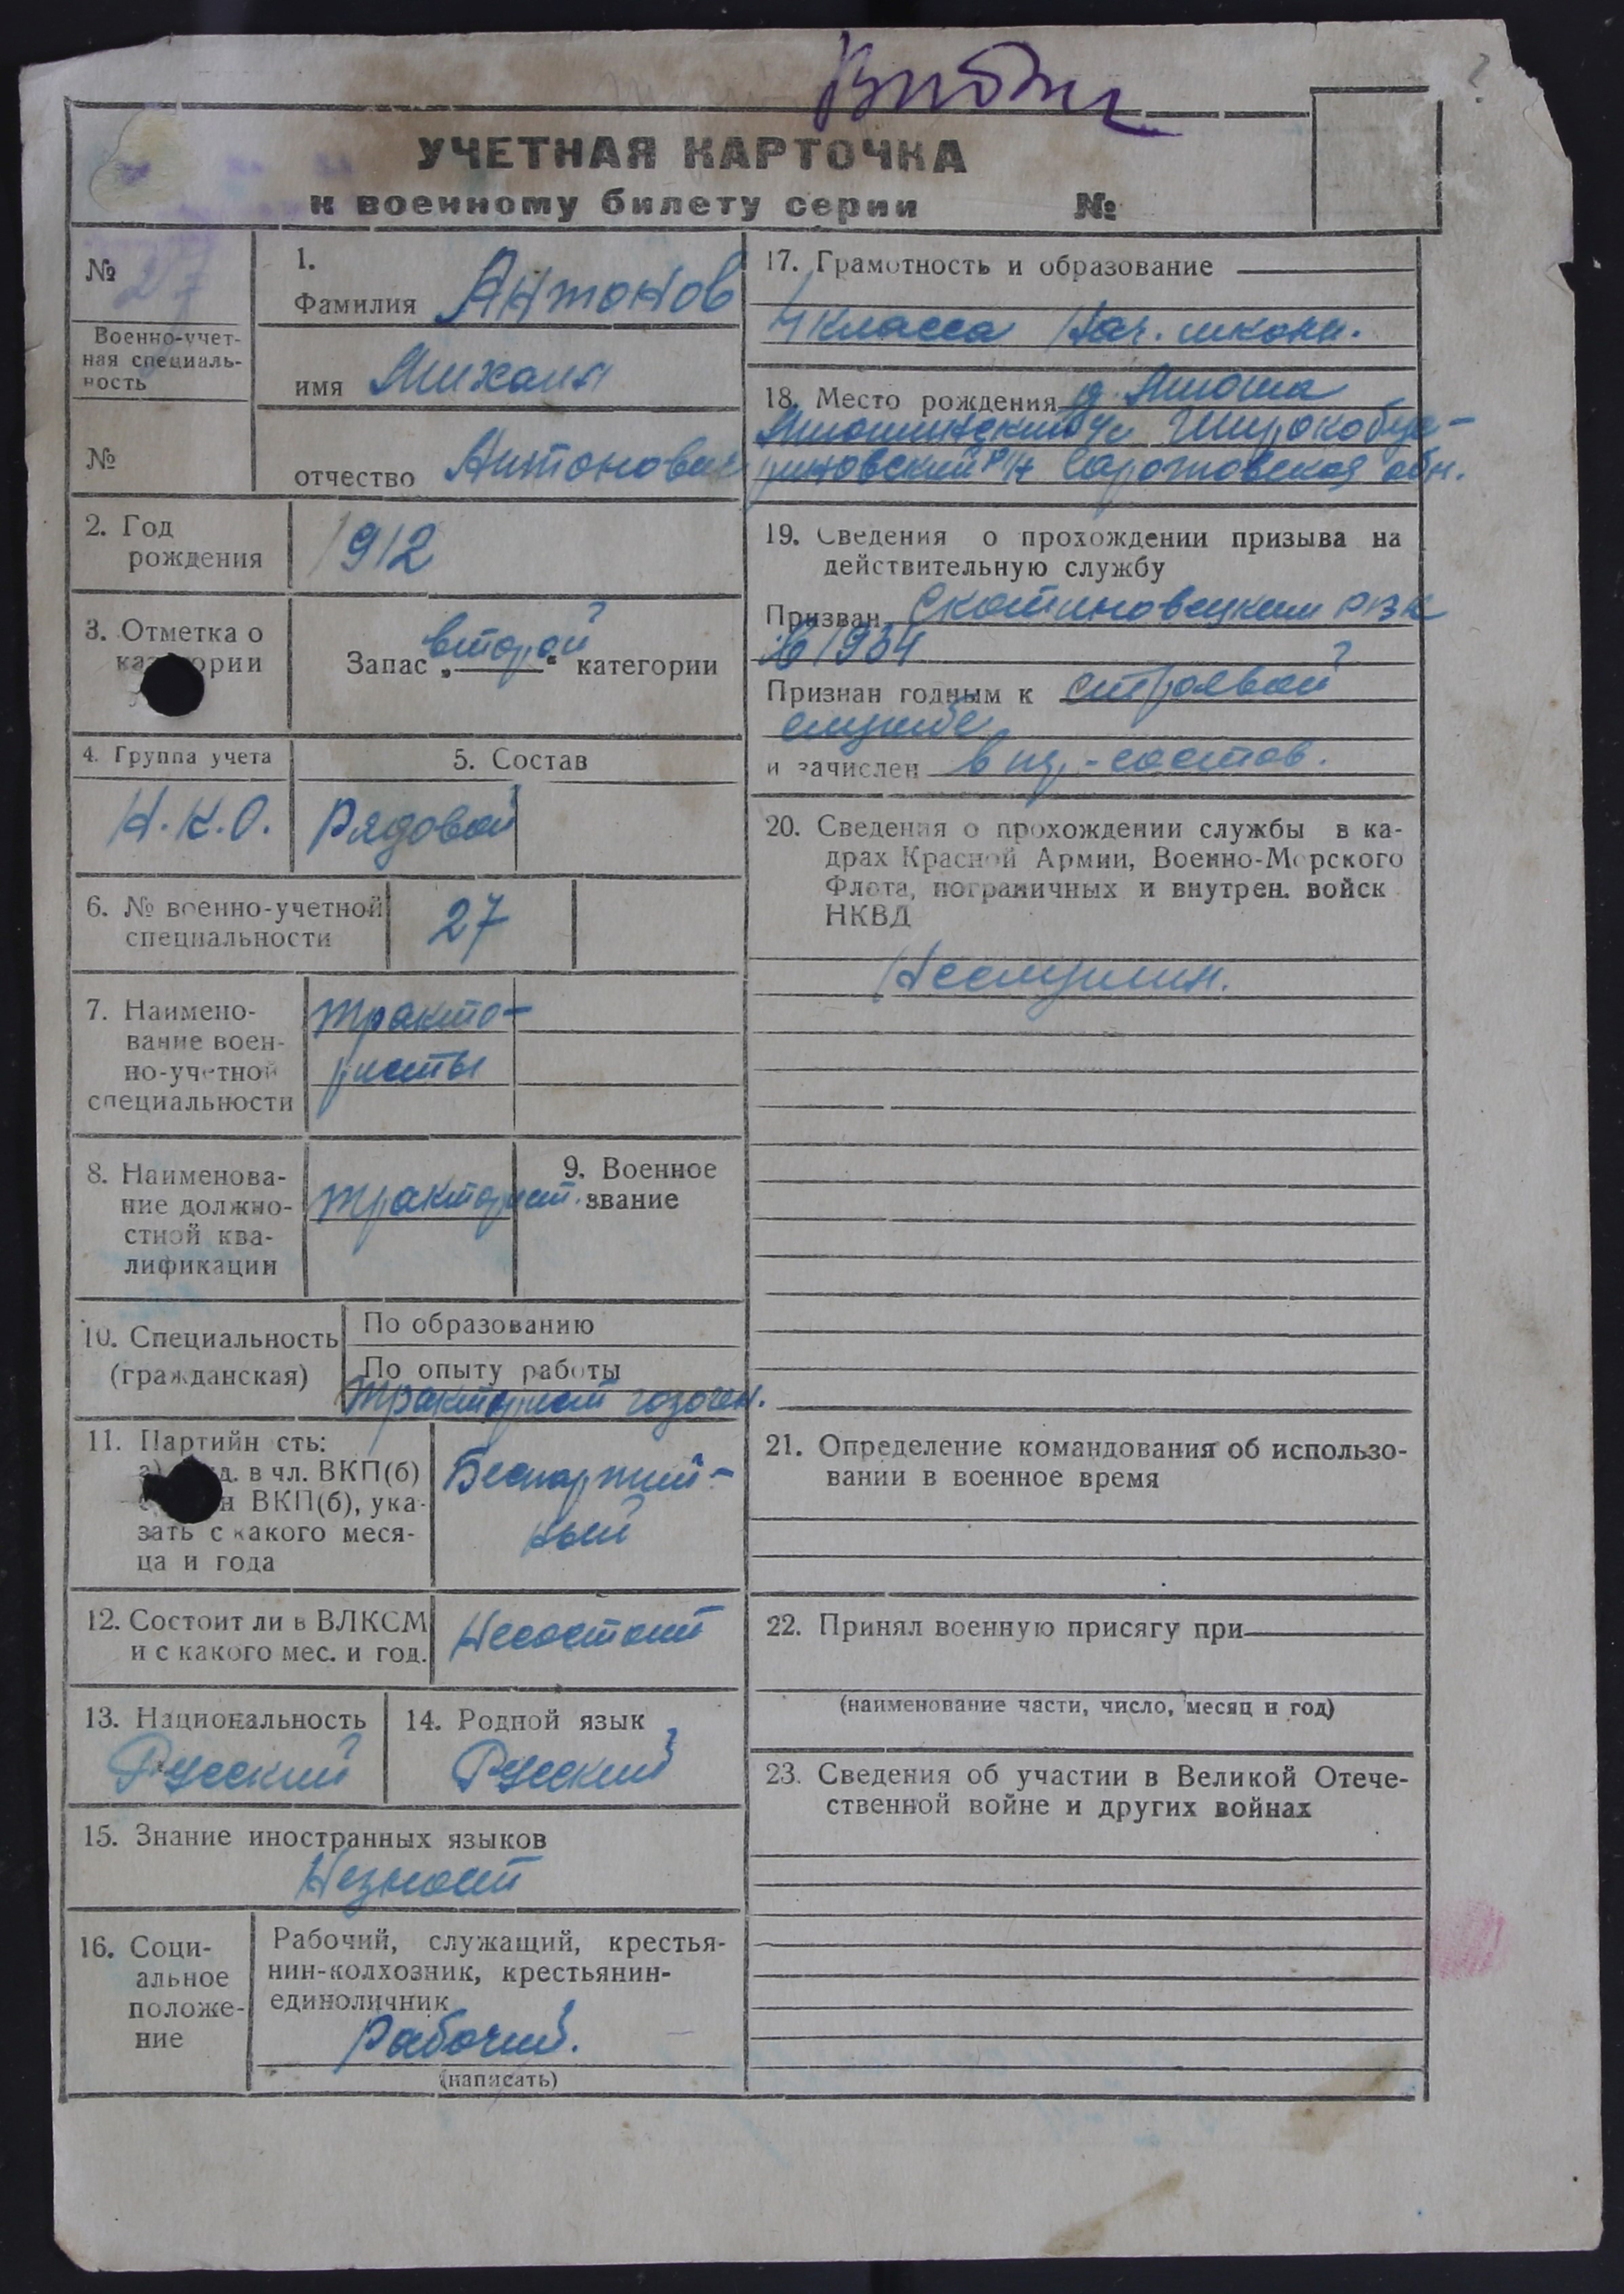 УЧЕТНАЯ КАРТОЧКА
к военному билету серии №
№ 27
Военно-учет-
ная специаль-
ность
№
1.
Фамилия Антонов
имя Михаил
отчество Антонович
2. Год
рождения
1912
3. Отметка о
категории
Запас „второй“ категории
4. Группа учета
Н.К.О.
5. Состав
Рядовой
6. № военно-учетной
специальности
27
7. Наимено-
вание воен-
но-учетной
специальности
тракто-
ристы
8. Наименова-
ние должно-
стной ква-
лификации
тракторист.
9. Военное
звание
10. Специальность
(гражданская)
По образованию
По опыту работы
тракторист газоген.
11. Партийн сть:
д. в чл. ВКП(б)
н ВКП(б), ука-
зать с какого меся-
ца и года
Беспартий-
ный
12. Состоит ли в ВЛКСМ
и с какого мес. и год.
Несостоит
13. Национальность
Русский
14. Родной язык
Русский
15. Знание иностранных языков
Незнает
16. Соци-
альное
положе-
ние
Рабочий, служащий, крестья-
нин-колхозник, крестьянин-
единоличник
Рабочий.
(написать)
17. Грамотность и образование
4 класса Нач. школы.
18. Место рождения д.
Саратовская обл.
19. Сведения о прохождении призыва на
действительную службу
Призван РВК
в 1934
Признан годным к строевой
службе
и зачислен в состав.
20. Сведения о прохождении службы в ка-
драх Красной Армии, Военно-Морского
Флота, пограничных и внутрен. войск
НКВД
Неслужил.
21. Определение командования об использо-
вании в военное время
22. Принял военную присягу при
(наименование части, число, месяц и год)
23. Сведения об участии в Великой Отече-
ственной войне и других войнах